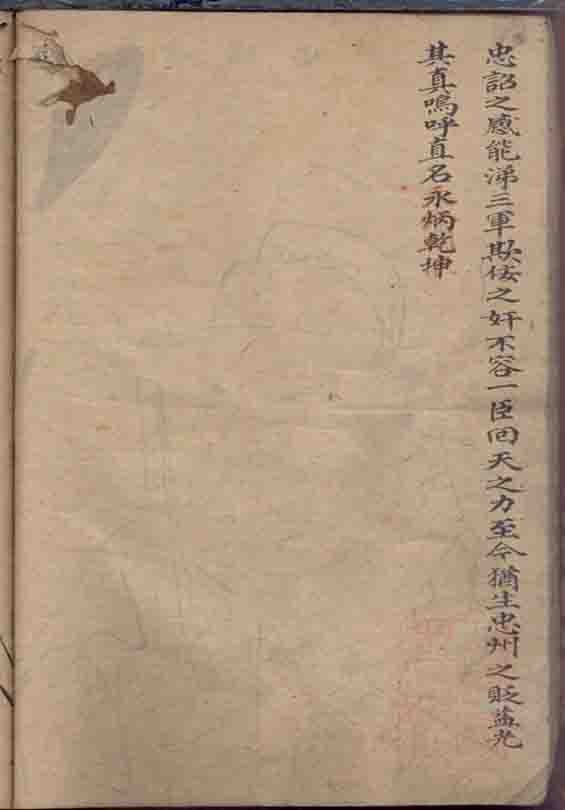 忠詔之感能涕三軍欺侫之奸不容一臣回天之力至今猶生忠州之貶益光
其真嗚呼直名永炳乾坤